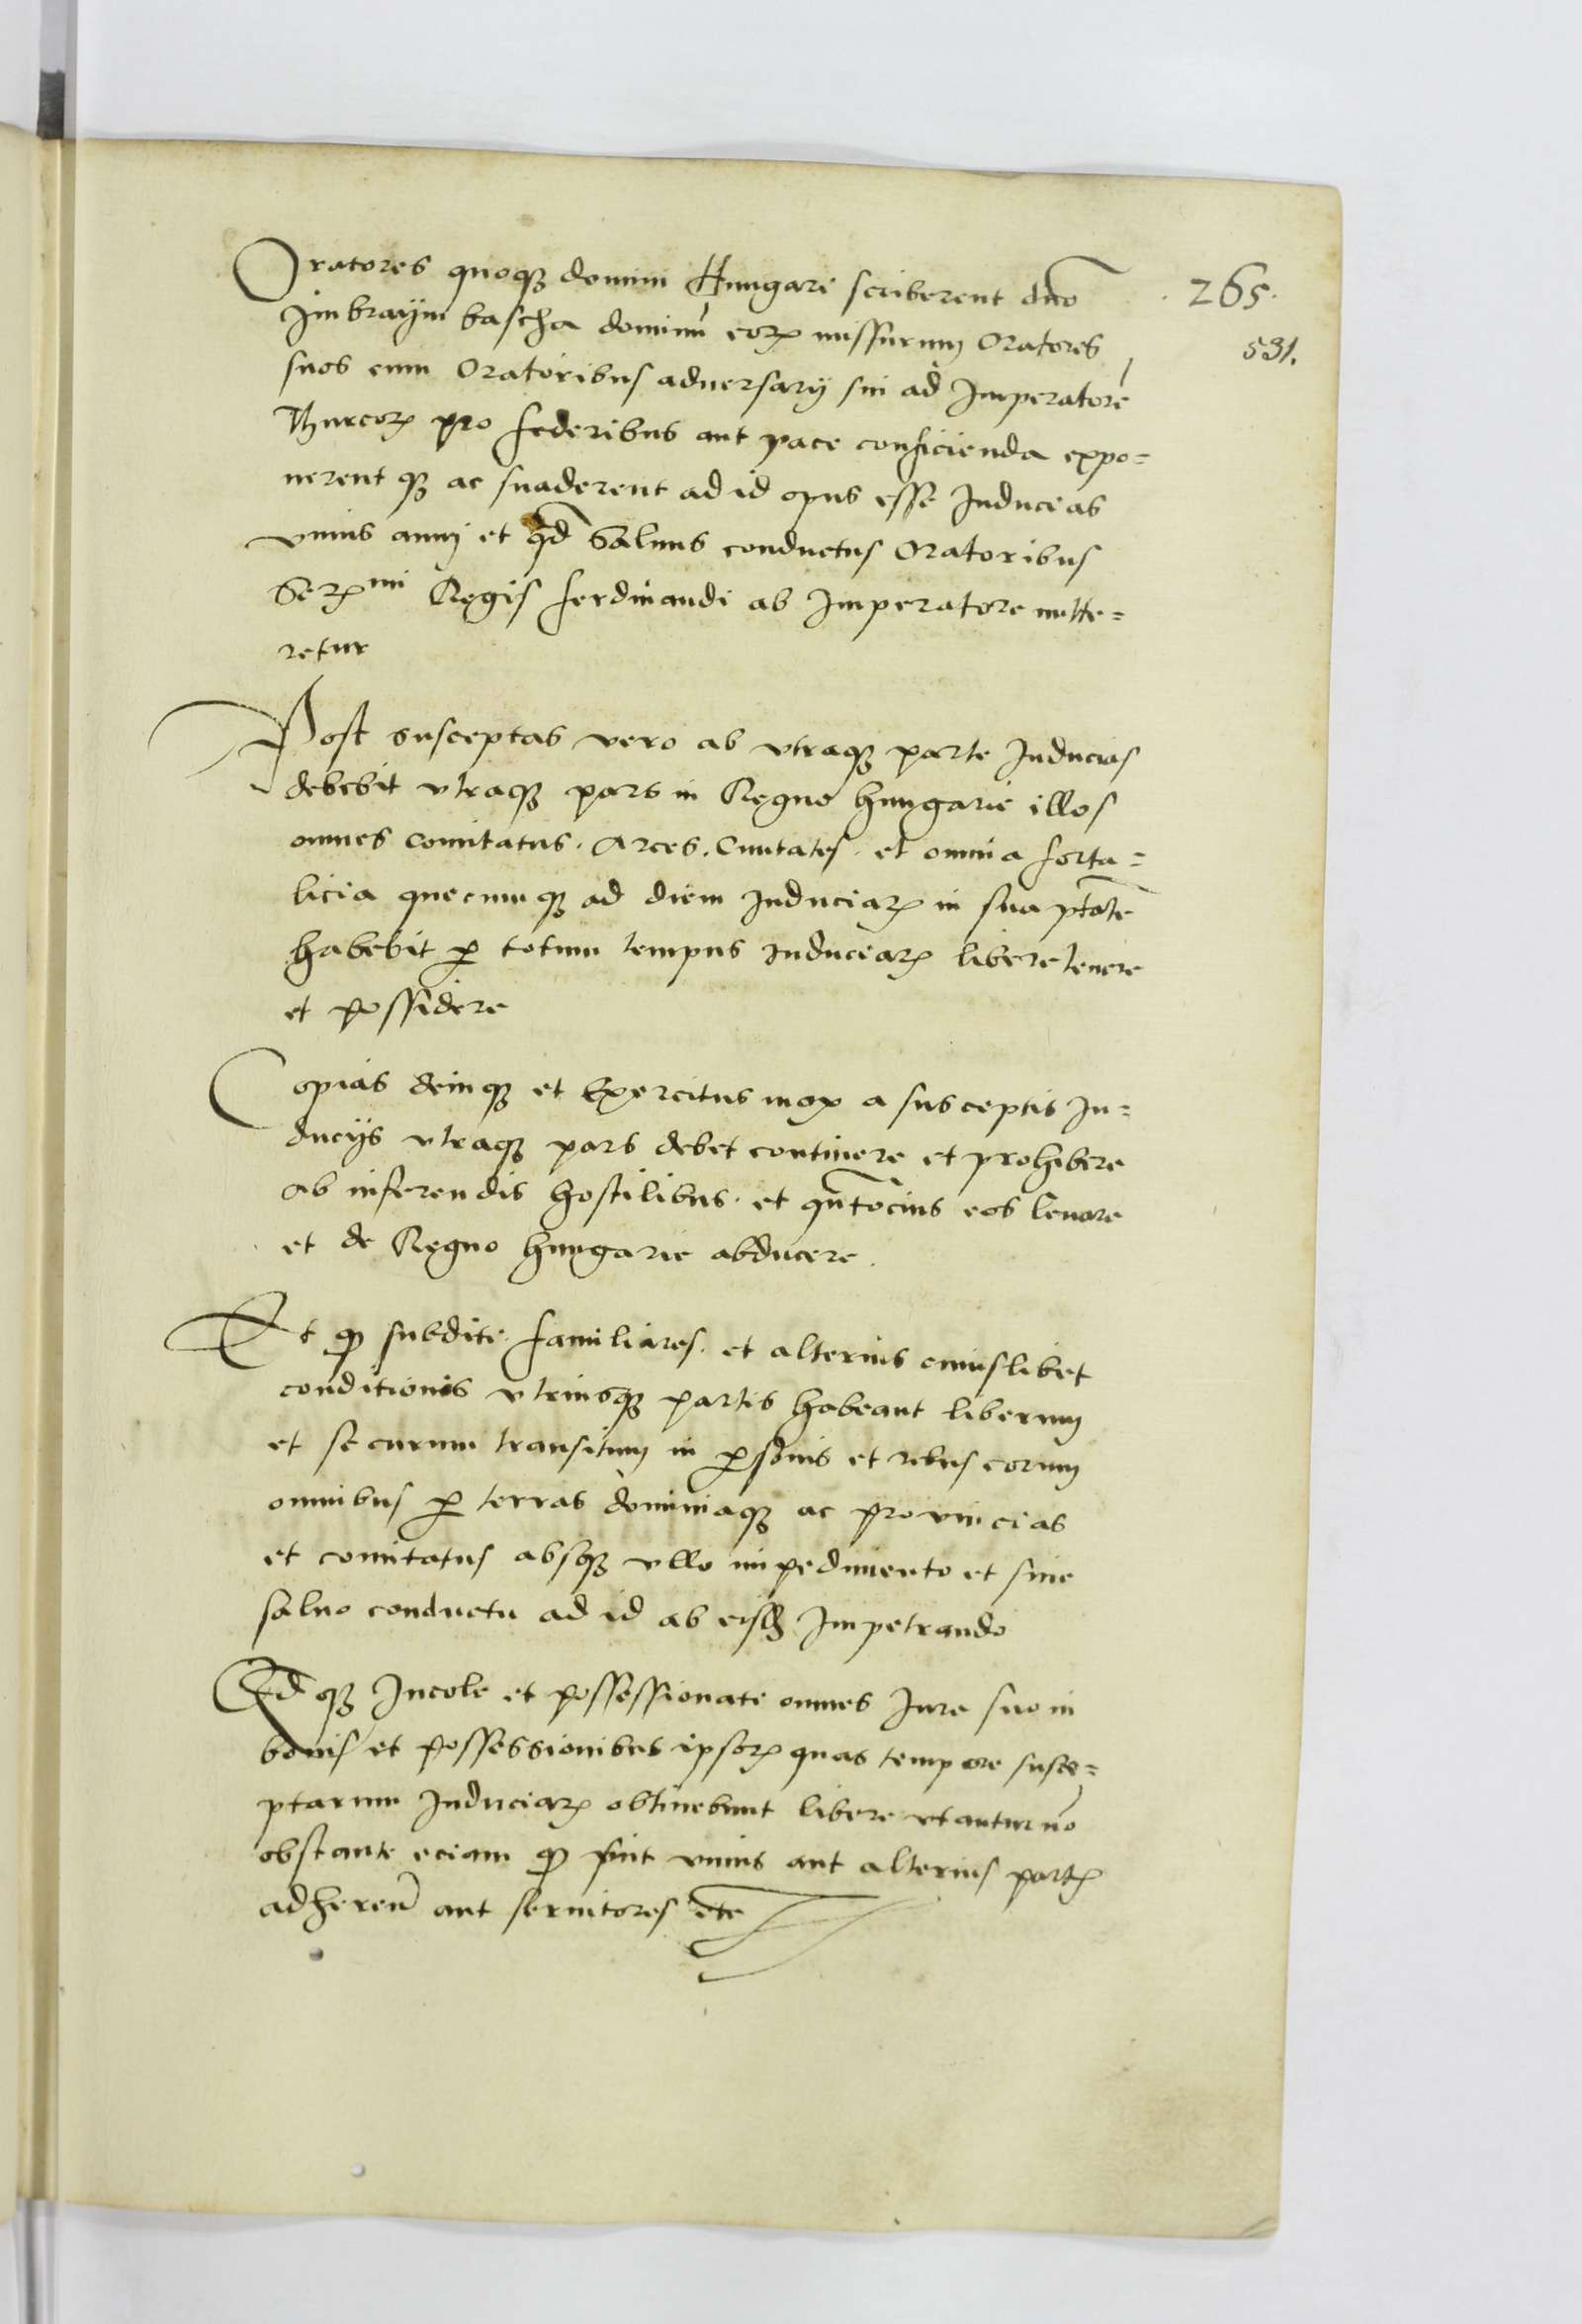 Oratores quoqȝ domini Hungari scriberent dno
Jmbraÿm bascha dominū eorꝝ missurum Oratores
suos cum Oratoribus aduersarÿ sui ad Jmperatorē
Thurcorꝝ pro federibus aut pace conficienda expo=
nerent qȝ ac suaderent ad id opus esse Jnducias
vnius anni et qd Saluus conductus Oratoribus
Serꝝmi Regis ferdinandi ab Jmperatore mitte=
retur
Post susceptas vero ab vtraqȝ parte Jnducias
debebit vtraqȝ pars in Regno hungarie illos
omnes comitatus. Arces. Ciuitates. et omnia forta=
licia quecunqȝ ad diem Jnduciarꝝ in sua ptāte
habebit ꝑ totum tempus Jnduciarꝝ libere tenere
et possidere
Copias deinqȝ et Exercitus mox a susceptis Jn=
ducÿs vtraqȝ pars debet continere et prohibere
ab inferendis hostilibus. et qn̄tocius eos leuare
et de Regno hungarie abducere.
Et qp subditi. familiares. et alterius cuiuslibet
conditionis vtriusqȝ partis habeant liberum
et securum transitum in ꝑsonis et rebus eorum
omnibus ꝑ terras dominiaqȝ ac prouincias
et comitatus absqȝ vllo impedimento et sine
saluo conductu ad id ab eisd Jmpetrando
Qd qȝ Jncole et possessionati omnes Jure suo in
bonis et possessionibus ipsorꝝ quas tempore susce=
ptarum Jnduciarꝝ obtinebunt libere vtantur nō
obstante eciam qp sint vnius aut alterius partꝭ
adheren̄ aut seruitores etc
. 265.
531.